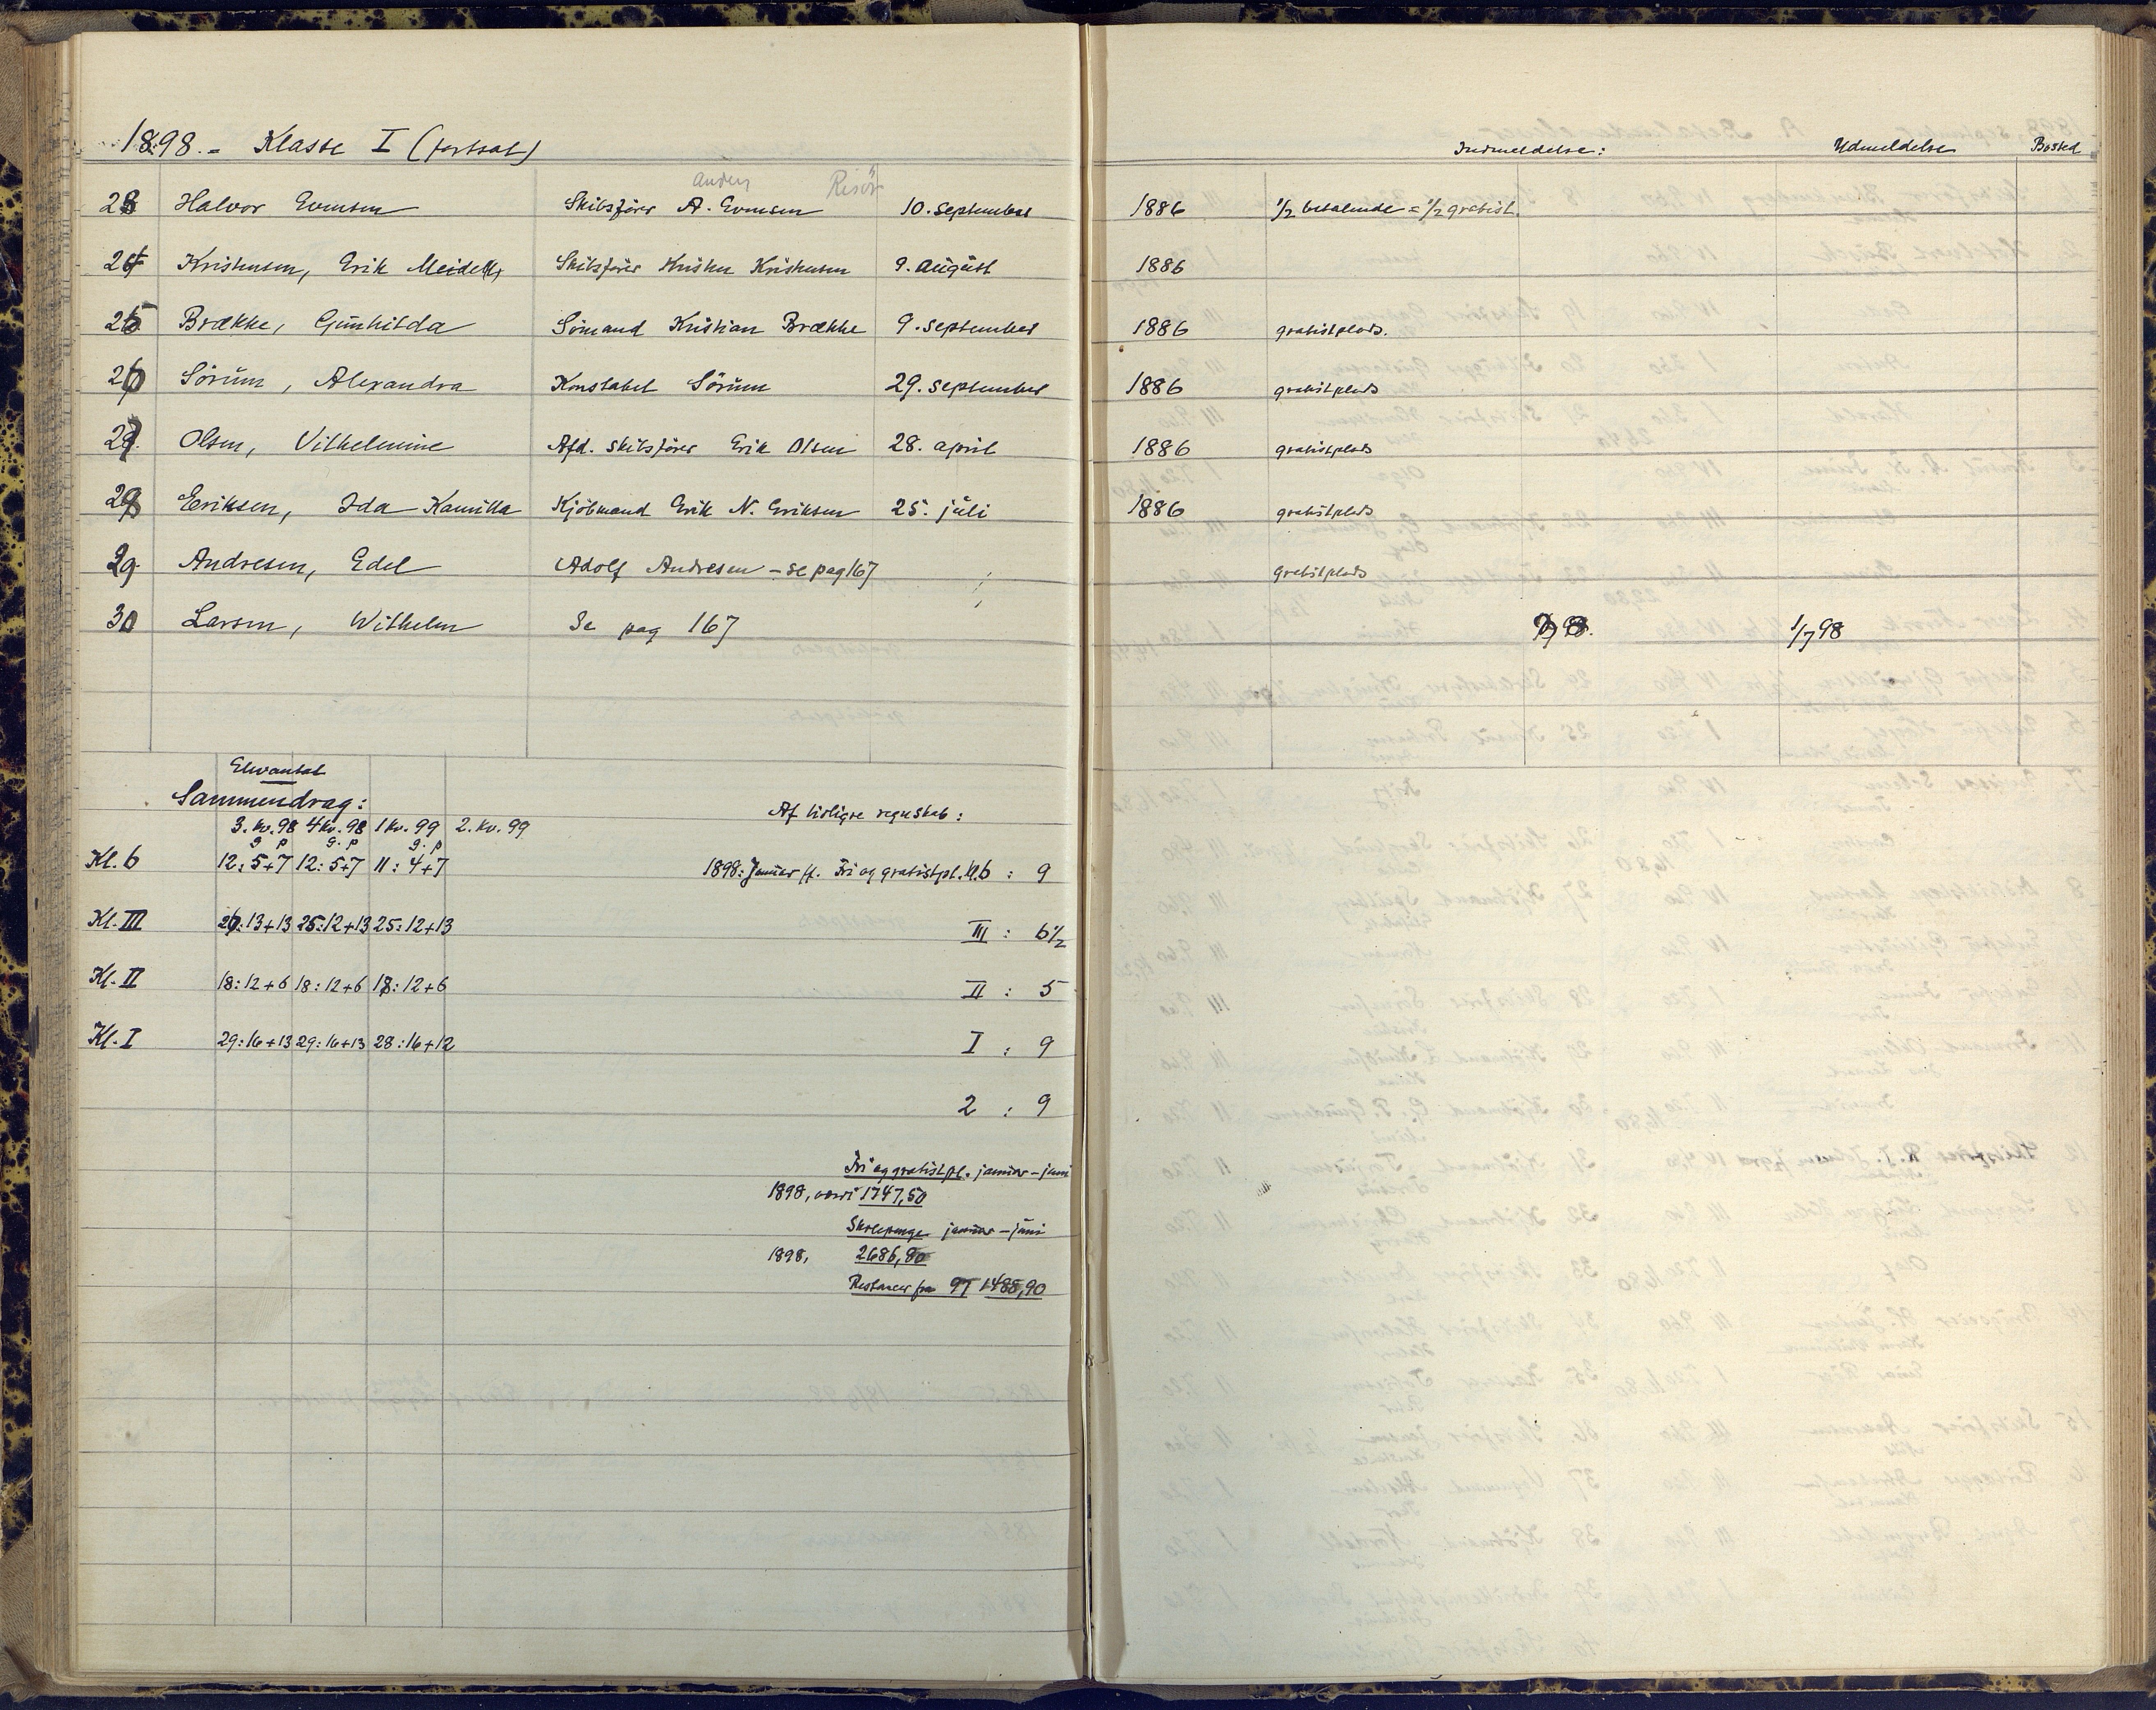 1898. - Klasse I (fortsat)
Indmeldelse: Udmeldelse Bosted
Anders Risör
28 Halvor Evensen Skibsfører A. Evensen 10. september 1886 1/2 betalende = 1/2 gratist.
24 Kristensen, Erik Meidell Skibsfører Kristen Kristensen 9. august 1886
25 Brække, Gunhilda Sömand Kristian Brække 9. september 1886 gratistplads.
26 Sörum, Alexandra Konstabel Sörum 29. september 1886 gratistplads
27. Olsen, Vilhelmine Afd. skibsförer Erik Olsen 28. april 1886 gratistplads
28 Eriksen, Ida Kamilla Kjöbmand Erik N. Eriksen 25. juli 1886 gratistplads
29 Andresen, Edel Adolf Andresen - se pag 167 gratistplads
30 Larsen, Wilhelm Se pag 167 1/7 98
Elevantal
Sammendrag:
Af tidligere regnskab:
3. kv. 98 4 kv. 98 1 kv. 99 2. kv. 99
g p g. p g. p
Kl. 6 12: 5+7 12: 5+7 11: 4+7 1898: Januar ff. Fri og gratistpl. kl. 6 : 9
Kl. III 26: 13+13 25: 12+13 25: 12+13 III : 6 1/2
Kl. II 18: 12+6 18: 12+6 18: 12+6 II : 5
Kl. I 29: 16+13 29: 16+13 28: 16+12 I : 9
2 : 9
Fri og gratistpl. januar - juni
1898, værdi 1747,50
Skolepenge januar - juni
1898, 2686,80
Restancer fra 97 1488,90